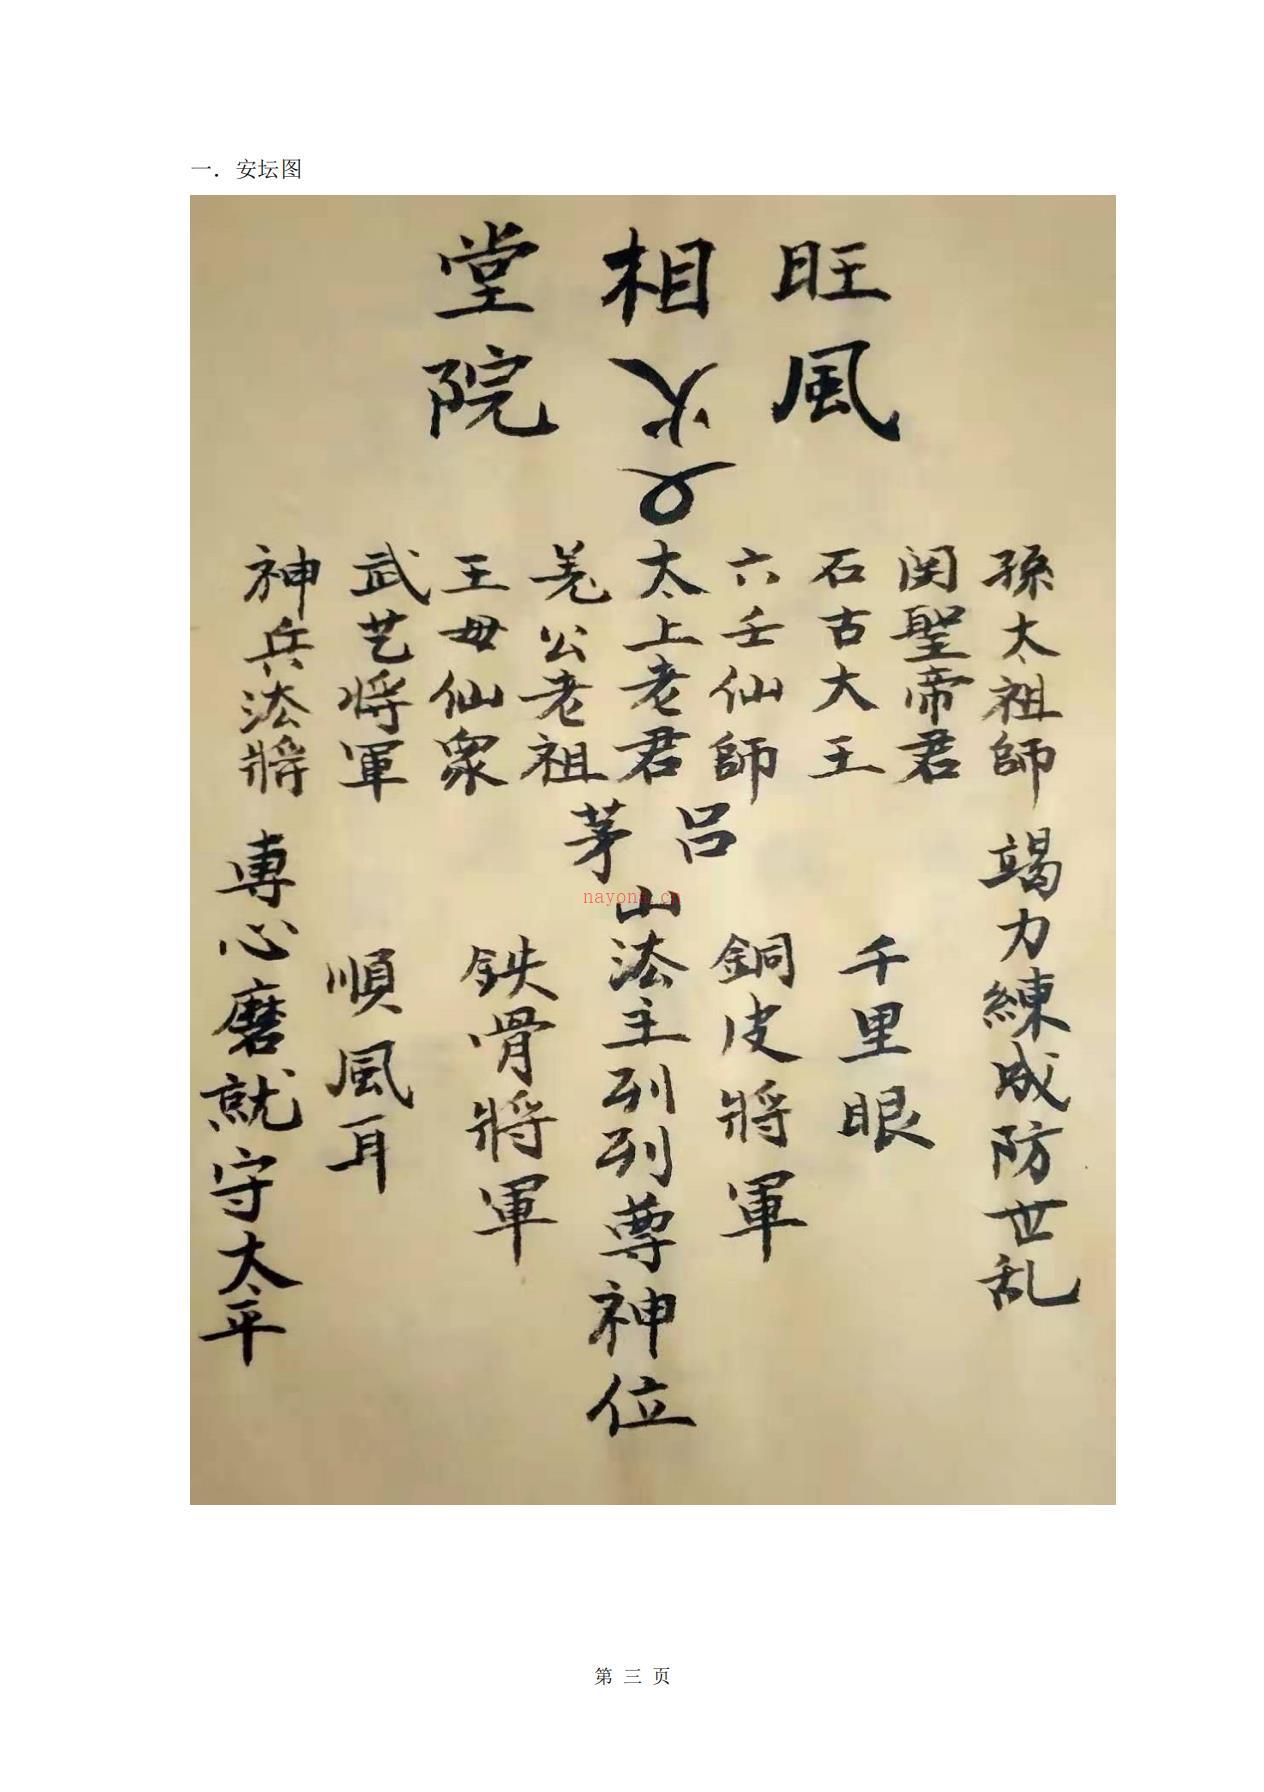 一．安坛图
旺相堂
風火院
孫太祖師
関聖帝君
石古大王
六壬仙師
太上老君
羗公老祖
王母仙眾
武艺将軍
神兵法將
呂茅
山法主列列尊神位
竭力練成防世乱
千里眼
銅皮將軍
鉄骨將軍
順風耳
專心磨就守太平
nayona.cn
第 三 页